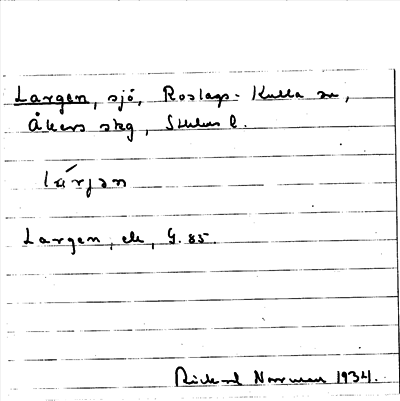 Largen, sjö, Roslags-Kulla sn,
Åkers skg, Sthlms l.
lárjan
Largen, ek, G. 85.
Rickard Norrman 1934.